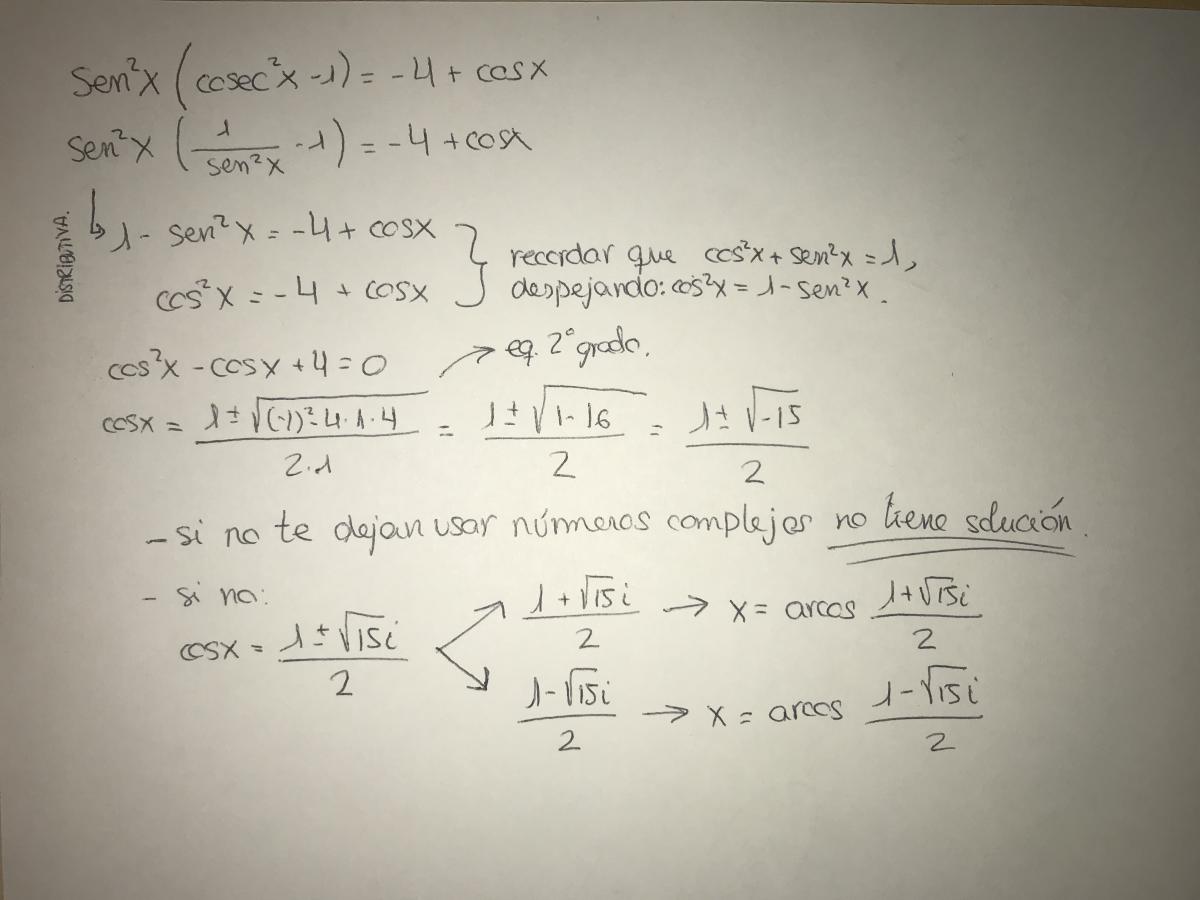 Sen²x (cosec²x -1) = -4 + cosx
sen²x (1/sen²x -1) = -4 + cosx
DISTRIBUTIVA. ↳ 1 - sen²x = -4 + cosx } recordar que cos²x + sen²x = 1,
cos²x = -4 + cosx } despejando: cos²x = 1 - sen²x.
cos²x - cosx + 4 = 0 → eq. 2° grado.
cosx = (1 ± √((-1)² - 4·1·4))/(2·1) = (1 ± √(1-16))/2 = (1 ± √-15)/2
- si no te dejan usar números complejos no tiene solución.
- si no:
cosx = (1 ± √15i)/2
(1 + √15i)/2 → x = arcos (1 + √15i)/2
(1 - √15i)/2 → x = arcos (1 - √15i)/2